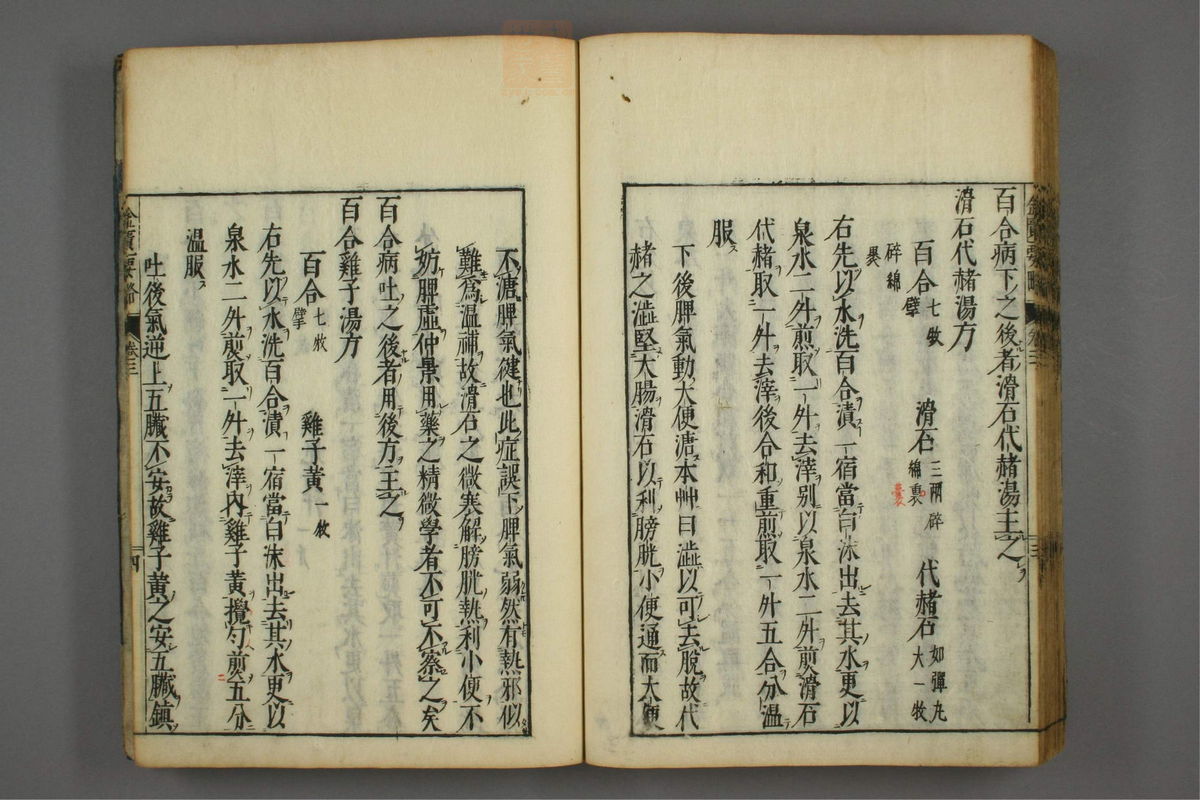 百合病下之後者滑石代赭湯主之
滑石代赭湯方
百合七枚擘 滑石三兩碎綿裹 代赭石如彈丸大一枚
碎綿
裹
右先以水洗百合漬一宿當白沫出去其水更以
泉水二升煎取一升去滓別以泉水二升煎滑石
代赭取一升去滓後合和重煎取一升五合分温
服
下後脾氣動大便溏本艸曰澁以可去脫故代
赭之澁堅大腸滑石以利膀胱小便通而大便
不溏脾氣健也此症誤下脾氣弱然有熱邪似
難爲温補故滑石之微寒解膀胱熱利小便不
妨脾虛仲景用藥之精微學者不可不察之矣
百合病吐之後者用後方主之
百合雞子湯方
百合七枚擘 雞子黃一枚
右先以水洗百合漬一宿當白沫出去其水更以
泉水二升煎取一升去滓內雞子黃攪勻煎五分
温服
吐後氣逆上五臟不安故雞子黃之安五臟鎮
卷三
四